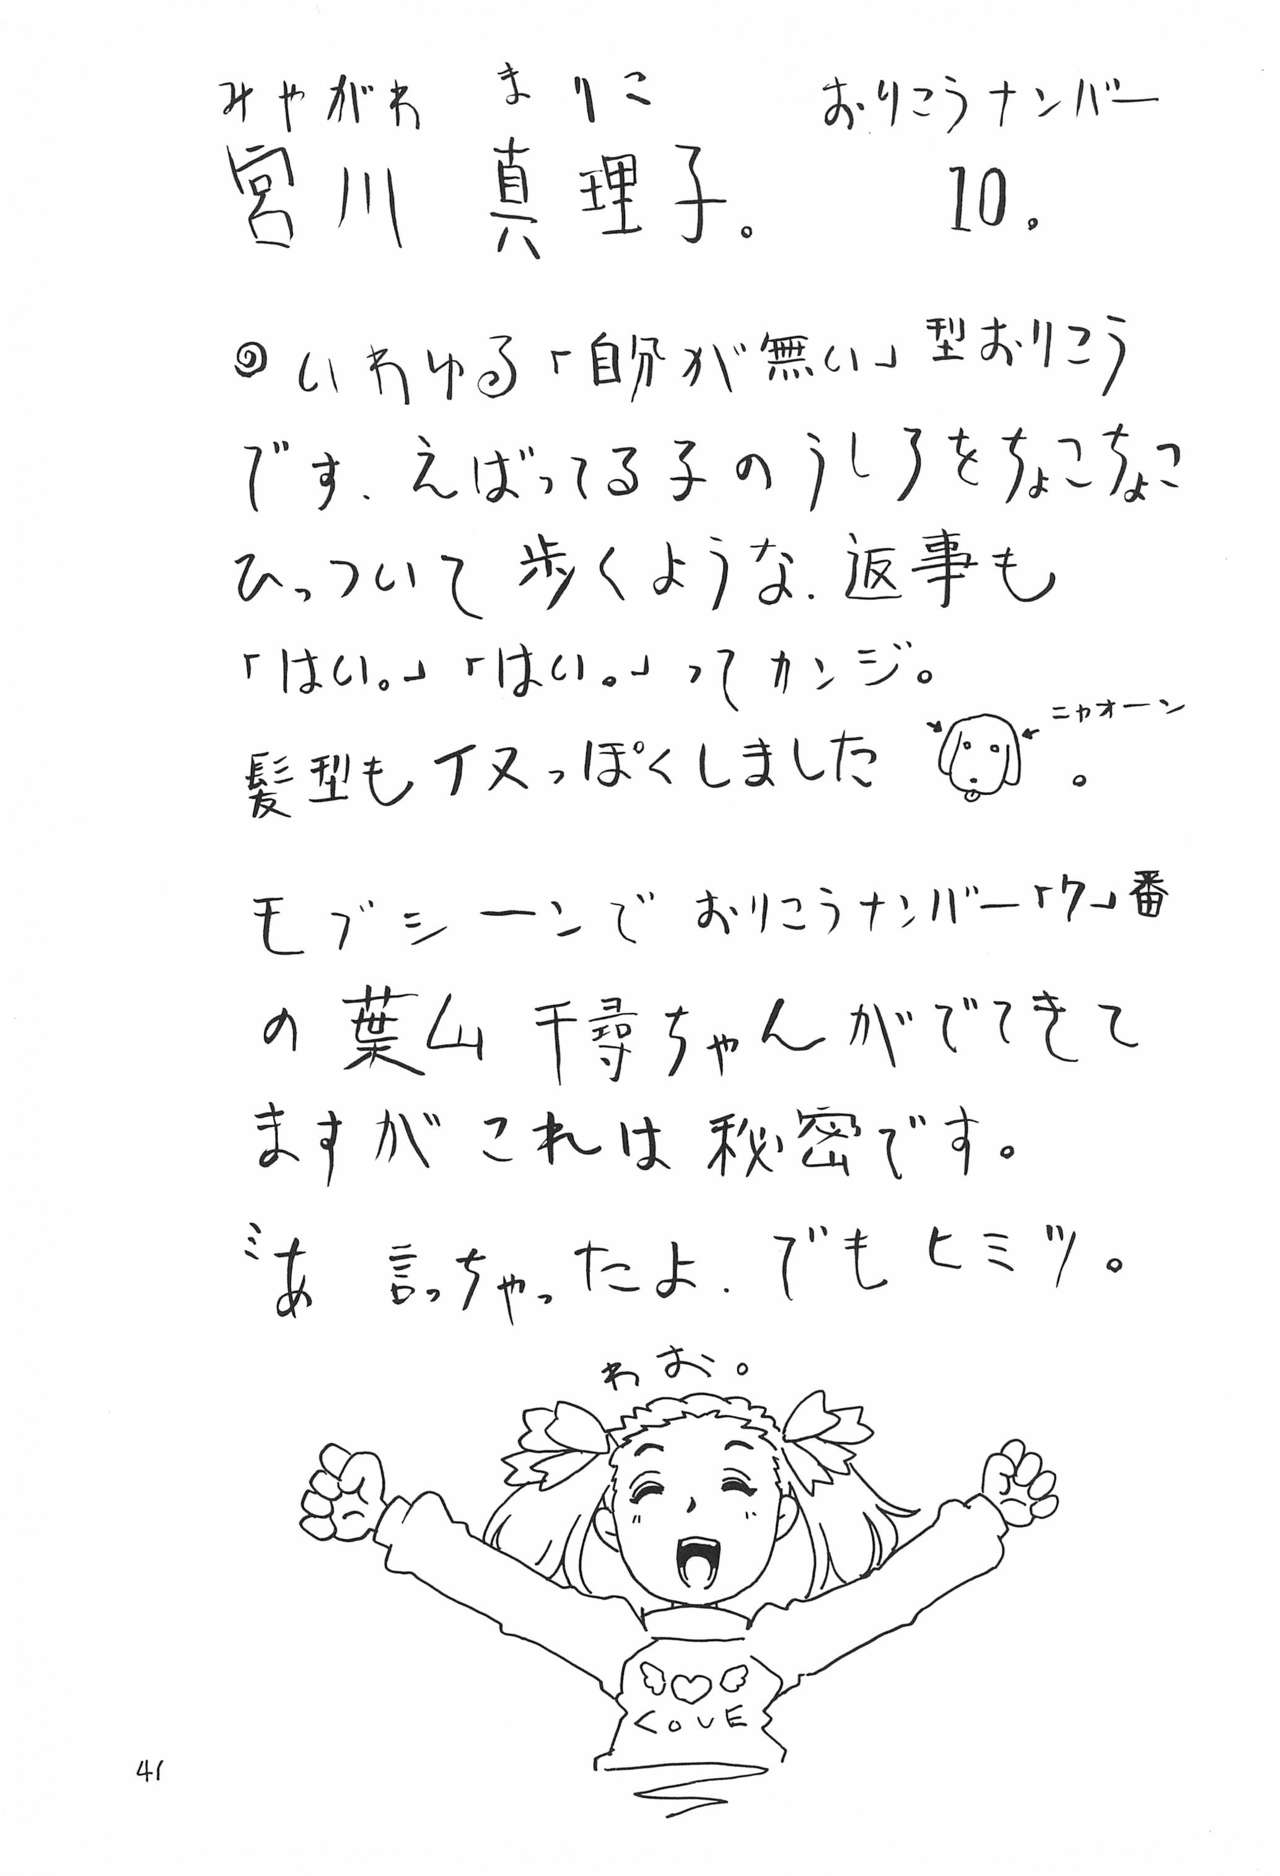 みやがわ まりこ おりこうナンバー
宮川 真理子。 10.
◎いわゆる「自分が無い」型おりこう
です、えばってる子のうしろをちょこちょこ
ひっついて歩くような、返事も
「はい。」「はい。」ってカンジ。
ニャオーン
髪型もイヌっぽくしました 。
モブシーンでおりこうナンバー「7」番
の葉山千尋ちゃんがでてきて
ますがこれは秘密です。
あ 言っちゃったよ、でもヒミツ。
わお。
LOVE
41